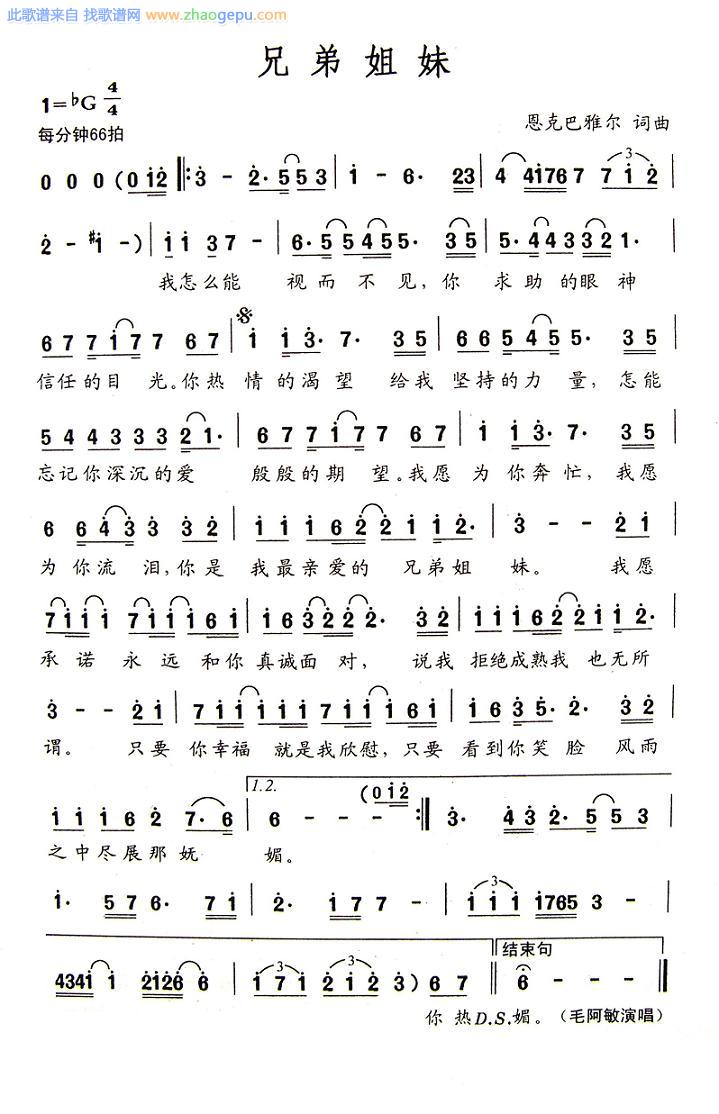 此歌谱来自 找歌谱网 www.zhaogepu.com
兄弟姐妹
1=♭G 4/4
每分钟66拍
恩克巴雅尔 词曲
0 0 0 (0 i 2 ‖: 3 - 2· 5 5 5 3 | i - 6· 2 3 | 4 4 i 7 6 7 7 i 2 |
2 - #i - ) | i i 3 7 - | 6· 5 5 4 5 5· 3 5 | 5· 4 4 3 3 2 1· |
我怎么能 视而不见,你 求助的眼神
6 7 7 i 7 7 6 7 | i i 3· 7· 3 5 | 6 6 5 4 5 5· 3 5 |
信任的目光。你热情的渴望 给我坚持的力量,怎能
5 4 4 3 3 3 2 1· | 6 7 7 i 7 7 6 7 | i i 3· 7· 3 5 |
忘记你深沉的爱 殷殷的期望。我愿为你奔忙,我愿
6 6 4 3 3 3 2 | i i i 6 2 2 i i 2· | 3 - - 2 i |
为你流泪,你是 我最亲爱的兄弟姐妹。我愿
7 i i i 7 i i i 6 i | i 6 3 2 2 2· 3 2 | i i i 6 2 2 i i i |
承诺永远和你真诚面对, 说我 拒绝成熟我也无所
3 - - 2 i | 7 i i i i 7 i i i 6 i | i 6 3 5· 2· 3 2 |
谓。 只要你幸福就是我欣慰,只要看到你笑脸风雨
1.2.
(0 i 2
i i i 6 2 7· 6 | 6 - - - :‖ 3· 4 3 2· 5 5 3 |
之中尽展那妩媚。
i· 5 7 6· 7 i | 2· i 7 7 - | i i i i 7 6 5 3 - |
结束句
4 3 4 i i 2 i 2 6 6 | i 7 i 2 i 2 3 ) 6 7 ‖ 6 - - - ‖
你热D.S.媚。(毛阿敏演唱)